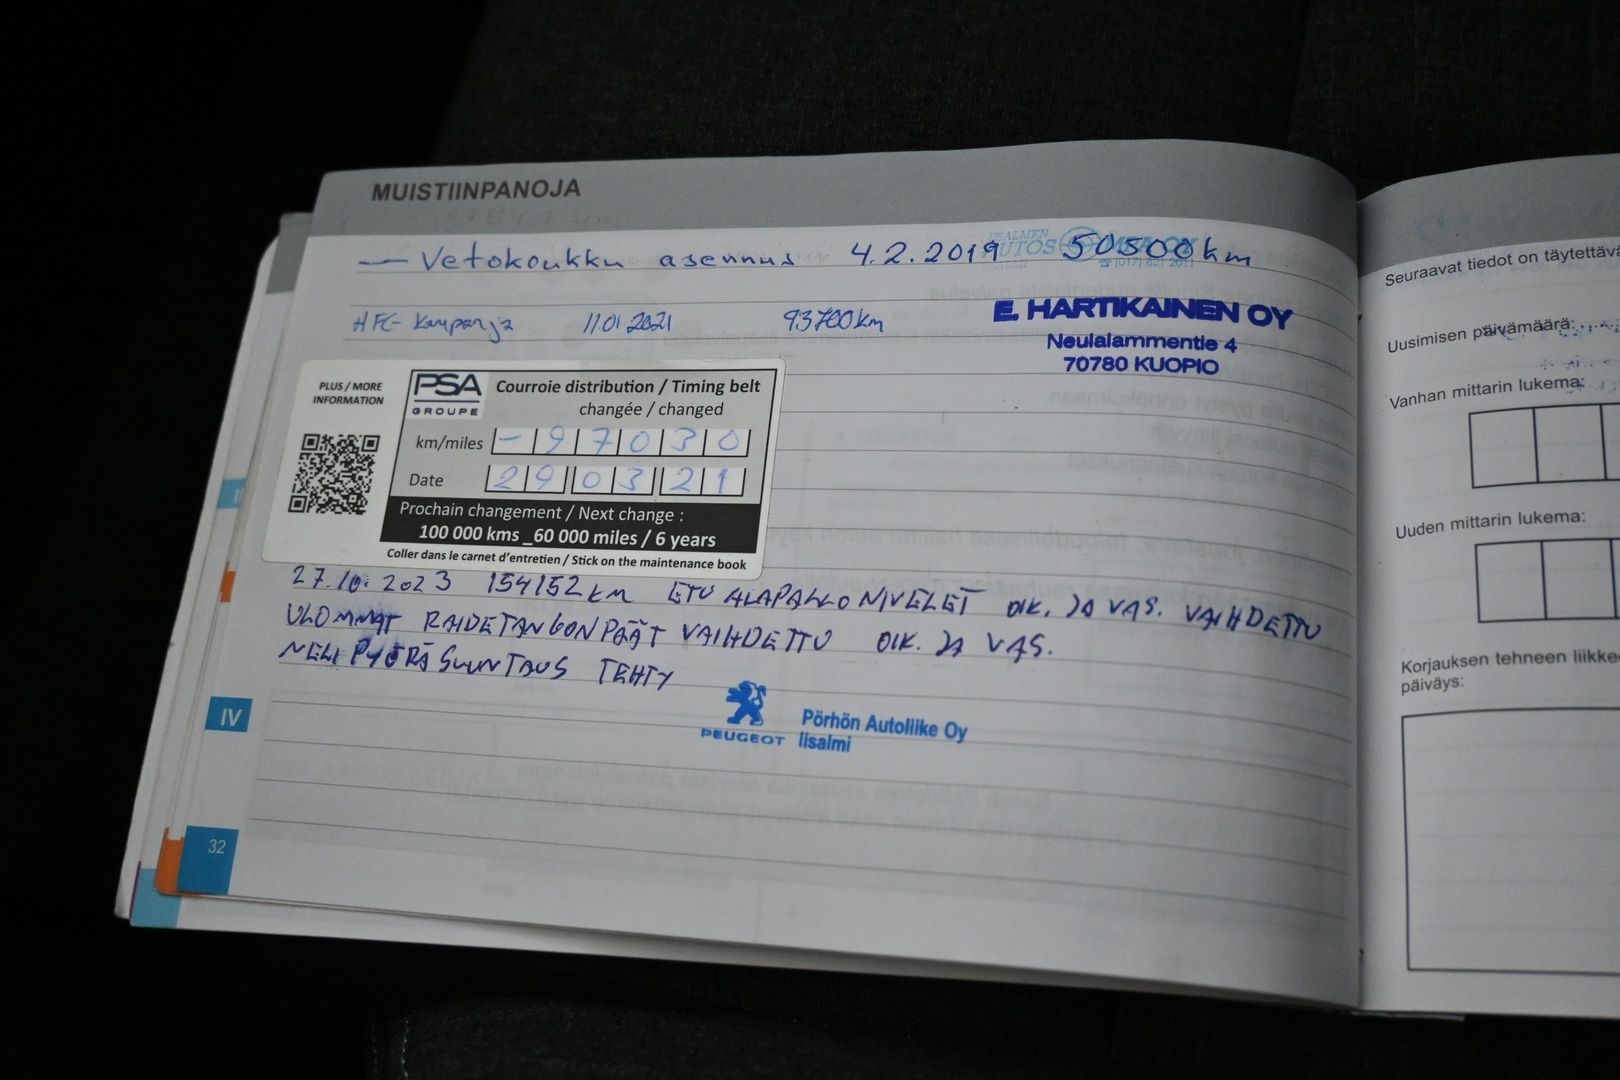 MUISTIINPANOJA
— Vetokoukku asennus 4.2.2019 50500km
HFC- Kampanja 11.01.2021 93700km
E. HARTIKAINEN OY
Neulalammentie 4
70780 KUOPIO
PLUS / MORE
INFORMATION
PSA
GROUPE
Courroie distribution / Timing belt
changée / changed
km/miles - 97030
Date 29 03 21
Prochain changement / Next change :
100 000 kms _60 000 miles / 6 years
Coller dans le carnet d'entretien / Stick on the maintenance book
27.10.2023 154152km ETU ALAPALLONIVELET OIK. JA VAS. VAIHDETTU
ULOMMAT RAIDETANGONPÄÄT VAIHDETTU OIK. JA VAS.
NELIPYÖRÄSUUNTAUS TEHTY
PEUGEOT
Pörhön Autoliike Oy
Iisalmi
IV
32
Seuraavat tiedot on täytettävä
Uusimisen päivämäärä:
Vanhan mittarin lukema:
Uuden mittarin lukema:
Korjauksen tehneen liikkee
päiväys: